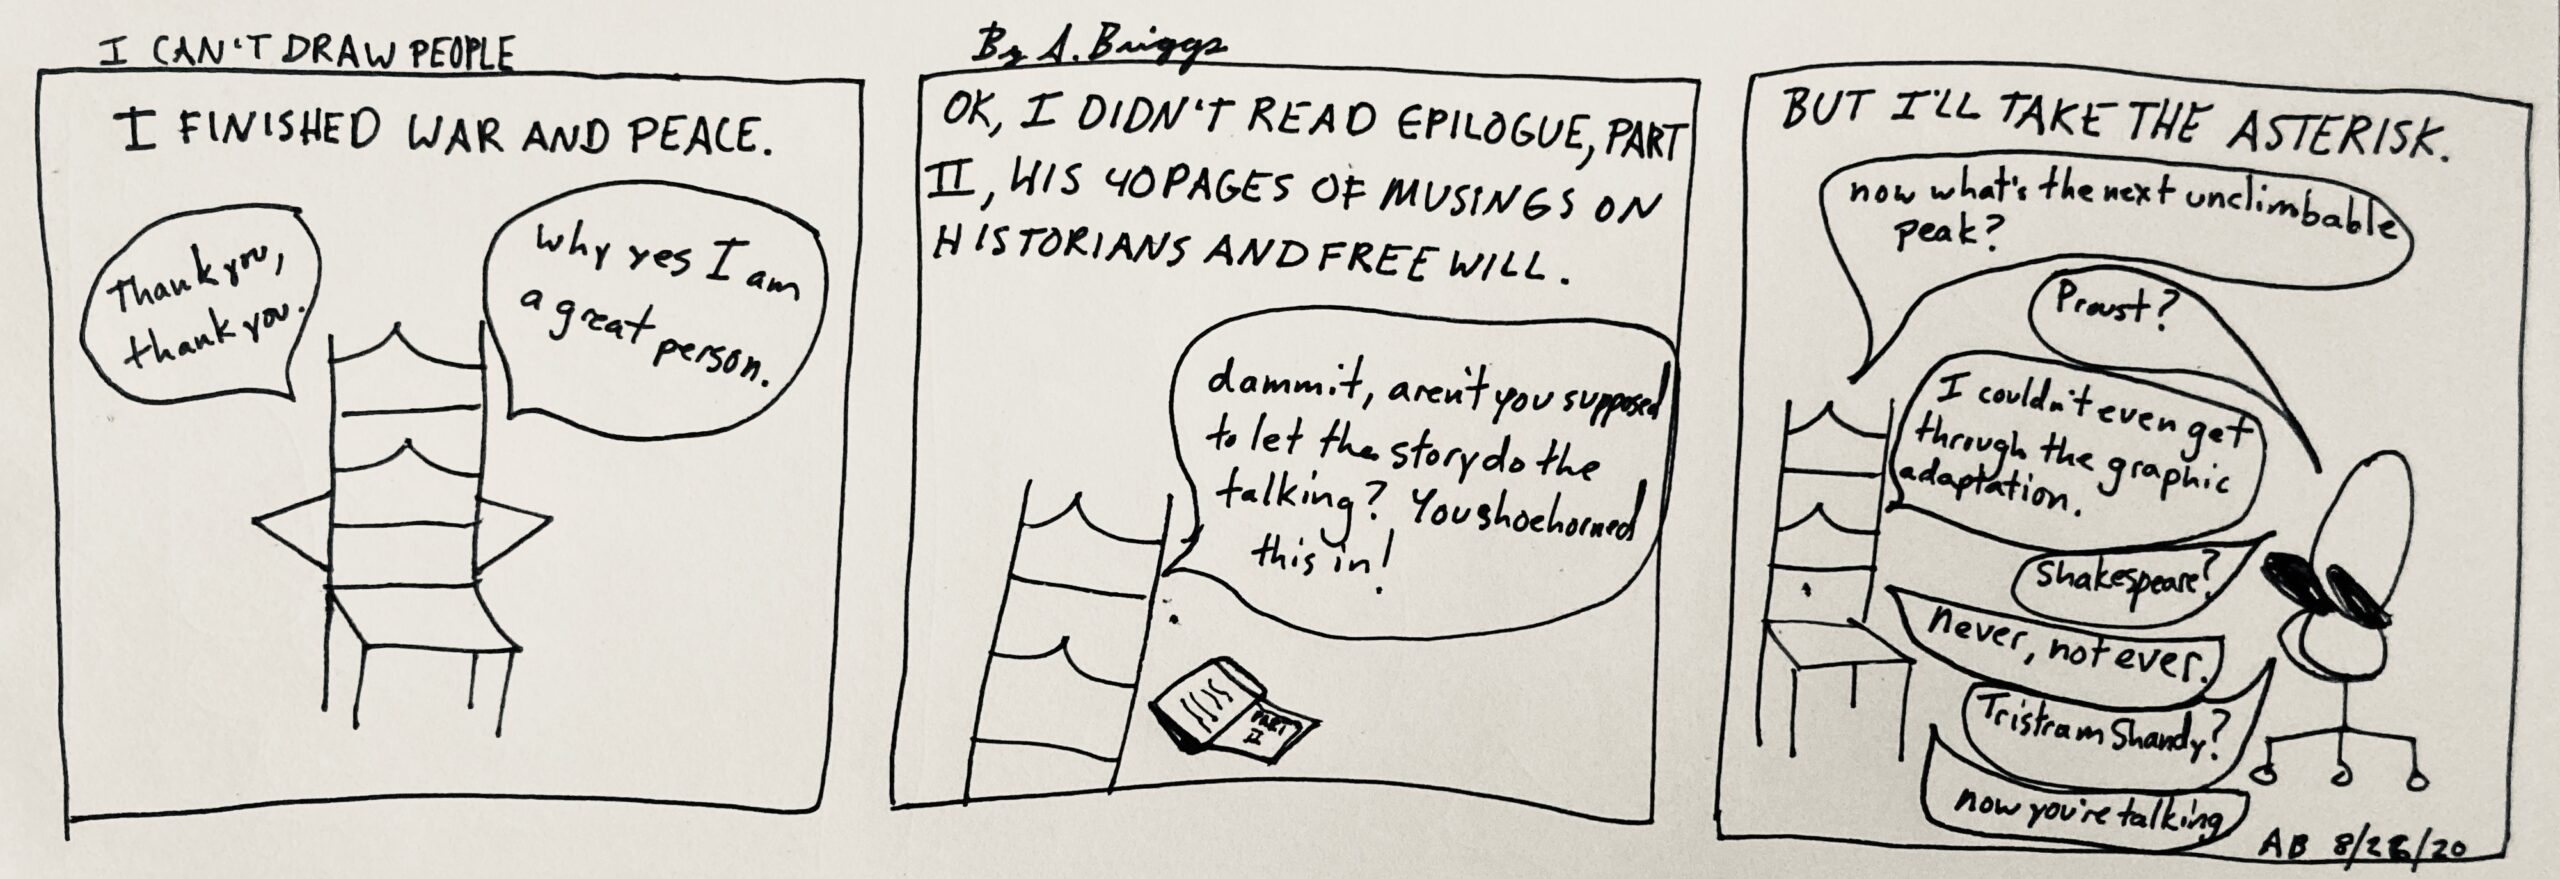 I CAN'T DRAW PEOPLE
By A. Briggs
I FINISHED WAR AND PEACE.
Thank you,
thank you.
why yes I am
a great person.
OK, I DIDN'T READ EPILOGUE, PART
II, HIS 40 PAGES OF MUSINGS ON
HISTORIANS AND FREE WILL.
dammit, aren't you supposed
to let the story do the
talking? You shoehorned
this in!
PART
II
BUT I'LL TAKE THE ASTERISK.
now what's the next unclimbable
peak?
Proust?
I couldn't even get
through the graphic
adaptation.
Shakespeare?
never, not ever.
Tristram Shandy?
now you're talking
AB